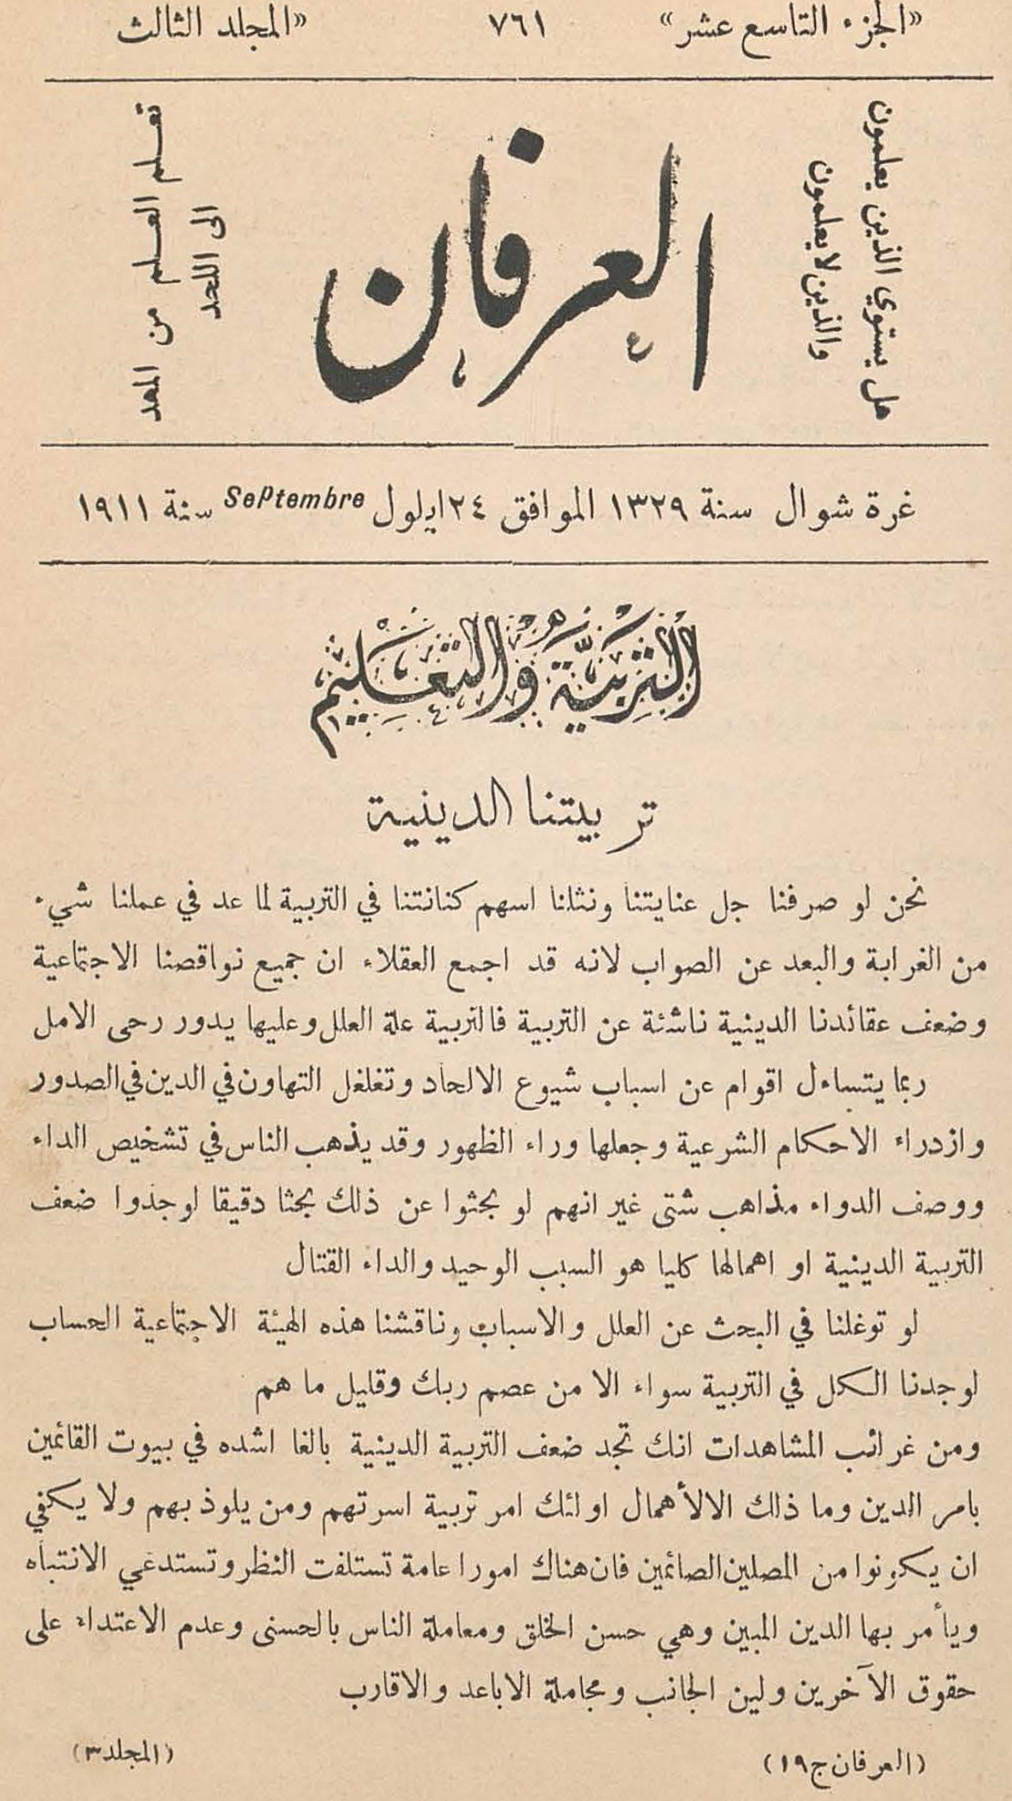 «الجزء التاسع عشر» ٧٦١ «المجلد الثالث»
هل يستوي الذين يعلمون
والذين لا يعلمون
العرفان
تعلم العلم من المهد
الى اللحد
غرة شوال سنة ١٣٢٩ الموافق ٢٤ ايلول Septembre سنة ١٩١١
التربية والتعليم
تربيتنا الدينية
نحن لو صرفنا جل عنايتنا ونثلنا اسهم كنانتنا في التربية لما عد في عملنا شيء
من الغرابة والبعد عن الصواب لانه قد اجمع العقلاء ان جميع نواقصنا الاجتماعية
وضعف عقائدنا الدينية ناشئة عن التربية فالتربية علة العلل وعليها يدور رحى الامل
ربما يتساءل اقوام عن اسباب شيوع الالحاد وتغلغل التهاون في الدين في الصدور
وازدراء الاحكام الشرعية وجعلها وراء الظهور وقد يذهب الناس في تشخيص الداء
ووصف الدواء مذاهب شتى غير انهم لو بحثوا عن ذلك بحثا دقيقا لوجدوا ضعف
التربية الدينية او اهمالها كليا هو السبب الوحيد والداء القتال
لو توغلنا في البحث عن العلل والاسباب وناقشنا هذه الهيئة الاجتماعية الحساب
لوجدنا الكل في التربية سواء الا من عصم ربك وقليل ما هم
ومن غرائب المشاهدات انك تجد ضعف التربية الدينية بالغا اشده في بيوت القائمين
بامر الدين وما ذلك الا لأهمال اولئك امر تربية اسرتهم ومن يلوذ بهم ولا يكفي
ان يكونوا من المصلين الصائمين فان هناك امورا عامة تستلفت النظر وتستدعي الانتباه
ويأمر بها الدين المبين وهي حسن الخلق ومعاملة الناس بالحسنى وعدم الاعتداء على
حقوق الآخرين ولين الجانب ومجاملة الاباعد والاقارب
(العرفان ج ١٩) (المجلد ٣)